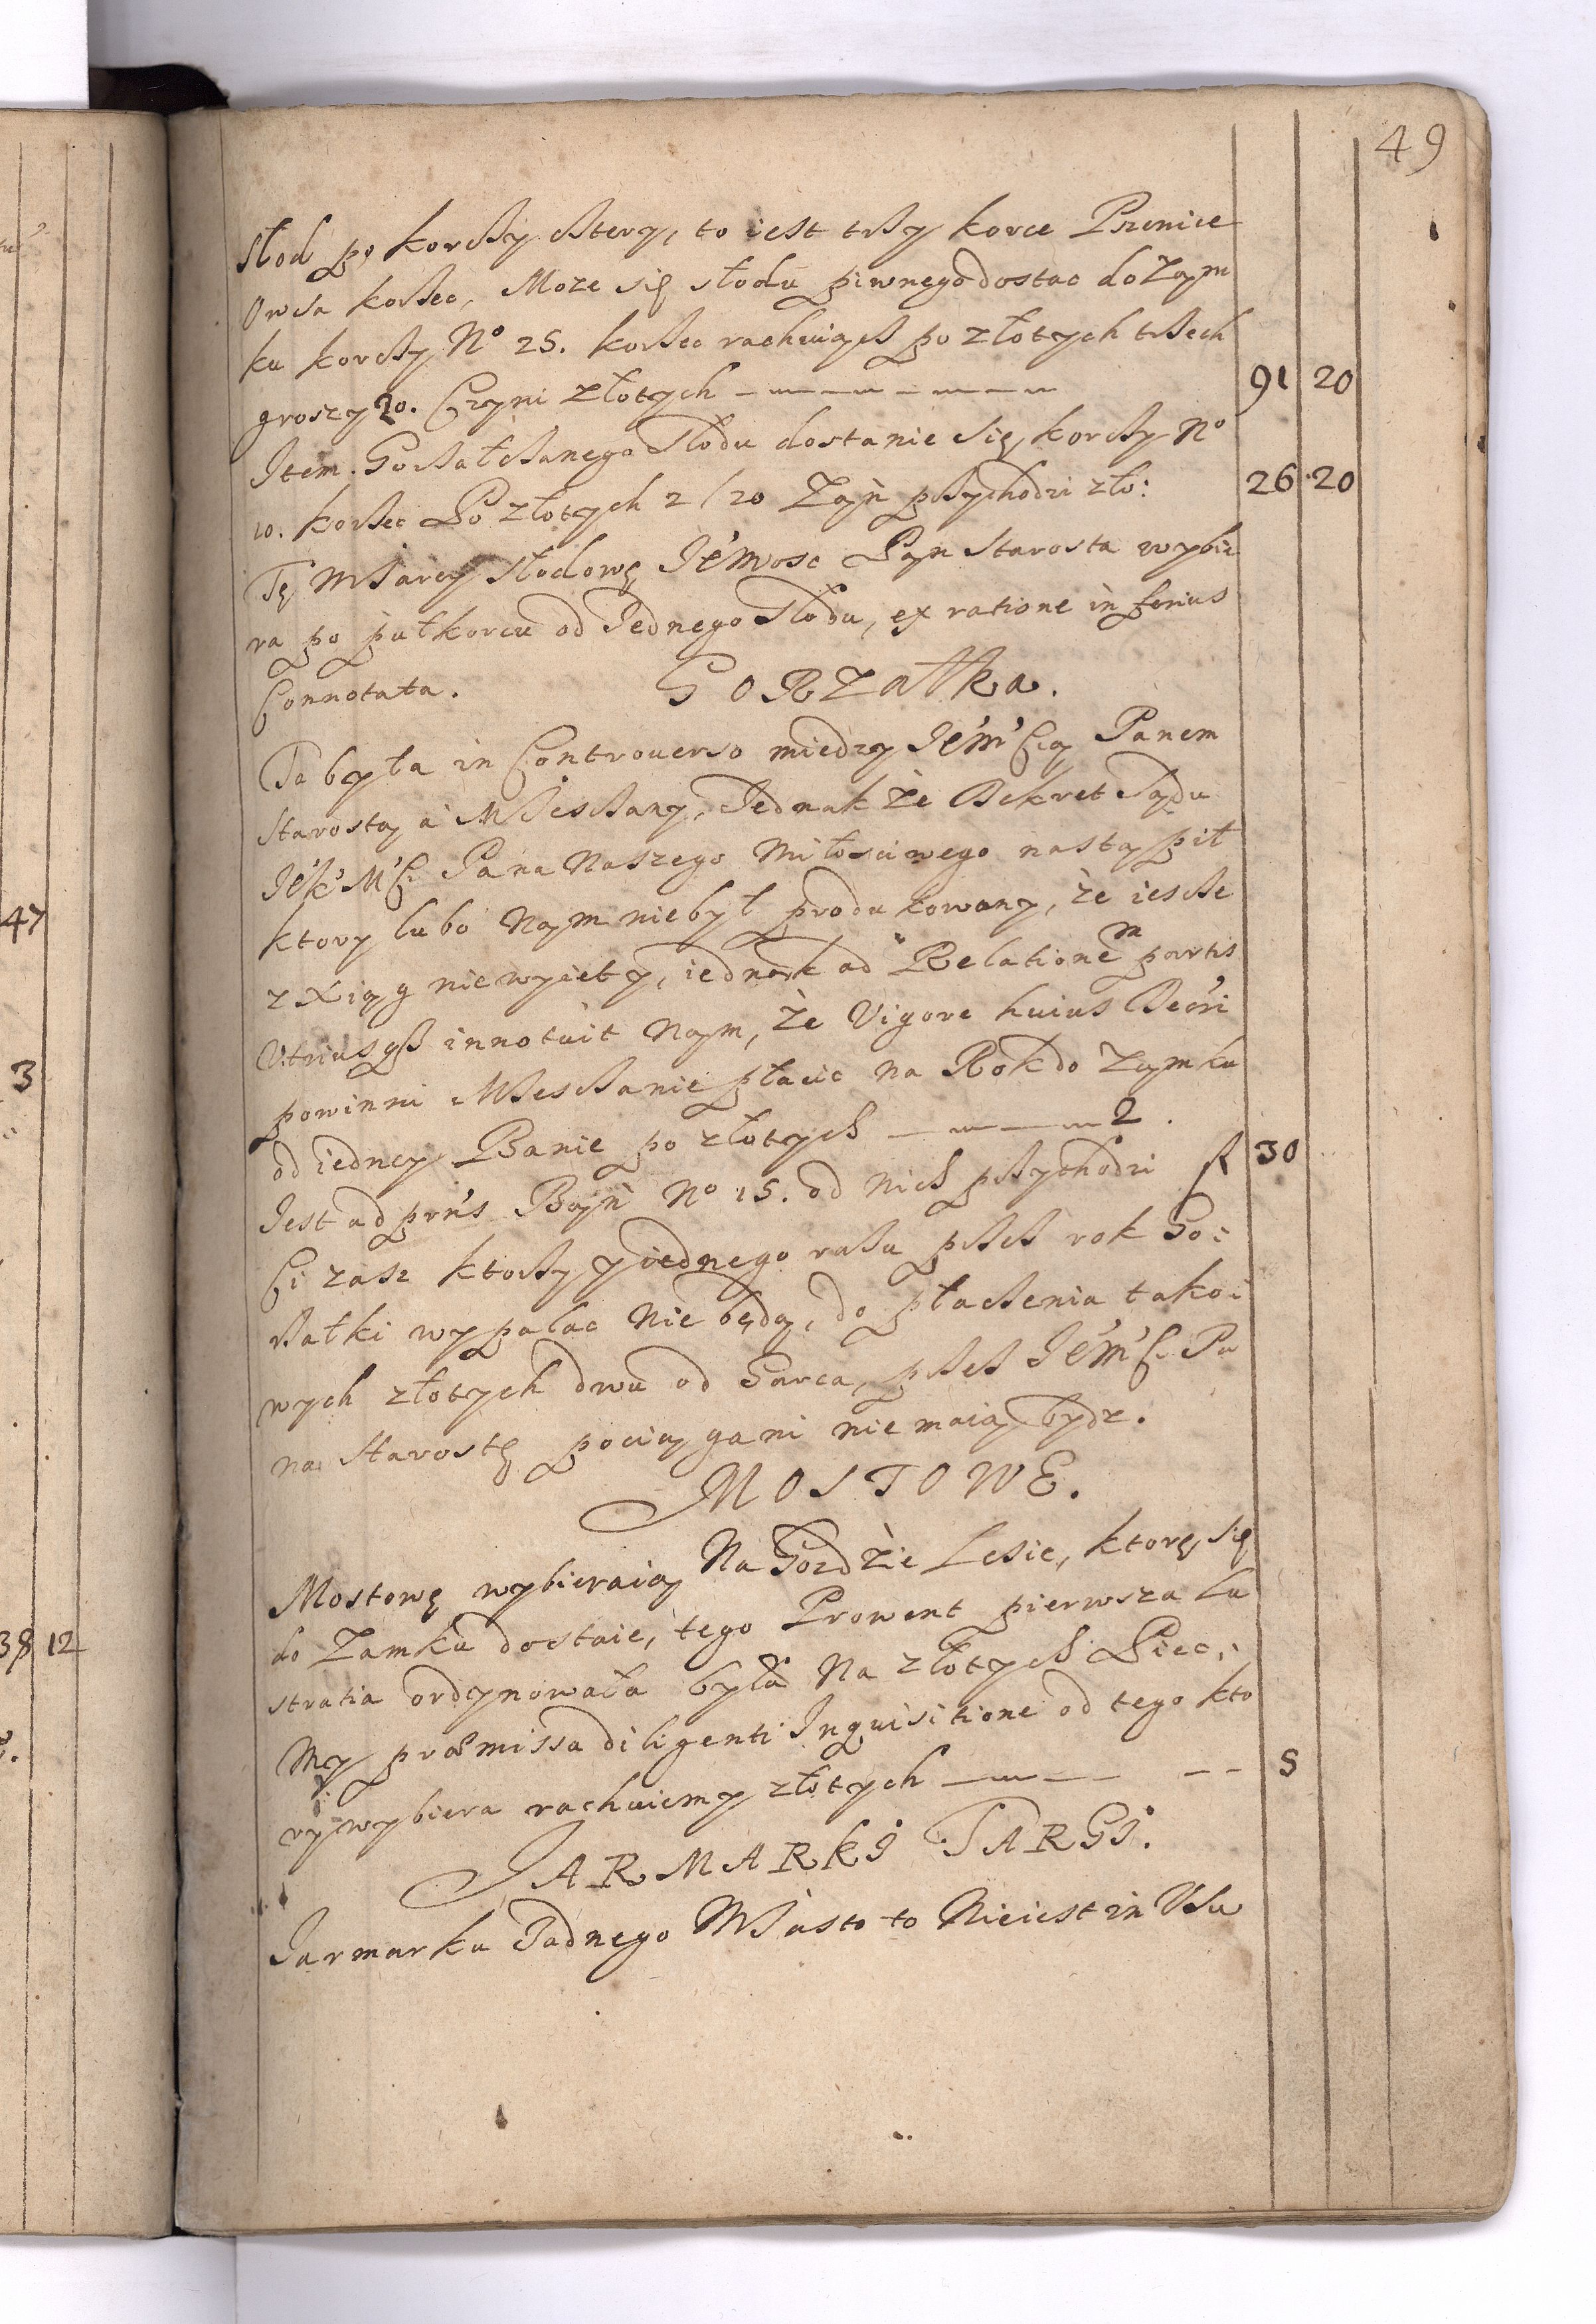 49
Słod po korczy cztery, to iest trzy korce Pszenice
Owsa korzec, Moze się słodu piwnego dostac do Zam
ku korczy No 25. korzec rachuiącz po złotych trzech
groszy 20. Czyni złotych 91 20
Item. Gorzałczanego Słodu dostanie się korczy No
10. korzec Po złotych 2/20 Zań przychodzi zło: 26 20
Tę Miarcy słodowę Je͂mosc Pan Starosta wybie
ra po pułkorcu od Jednego Słodu, ex ratione inferius
Connotata.
GORZAŁKA.
Ta była in Controuerso miedzy Je͂m͂ Cią Panem
Starostą à Miesczany, Jednak że Dekret Sądu
Je͂k͂ M͂ Ci Pana Naszego Miłosciwego nastąpił
ktory lubo Nam nie był produkowany, że iescze
z Xiąg nie wyięty, iednak ad Relationem partis
Utriusqz innotuit Nam, że Vigore huius Decri
powinni Miesczanie płacic na Rok do Zamku
od iedney Banie po złotych 2.
Jest ad pr͂ns Bań No 15. od nich przychodzi fl 30
Ci zasz ktorzy y iednego razu przez rok Go:
rzałki wypalac nie będą, do płaczenia tako:
wych złotych dwu od Garca, przez Je͂m͂ Ci Pa
na Starostę pociągani nie maią bydz.
MOSTOWE.
Mostowę wybieraią Na Gozdzie Lesie, ktorę się
do Zamku dostaie, tego Prowent pierwsza Lu
stratia ordynowała była Na złotych Piec,
My præmissa diligenti Inquisitione od tego kto
ry wybiera rachuiemy złotych 5
JARMARKI TARGI.
Jarmarku Żadnego Miasto to Nie iest in Usu
47
3
38 12